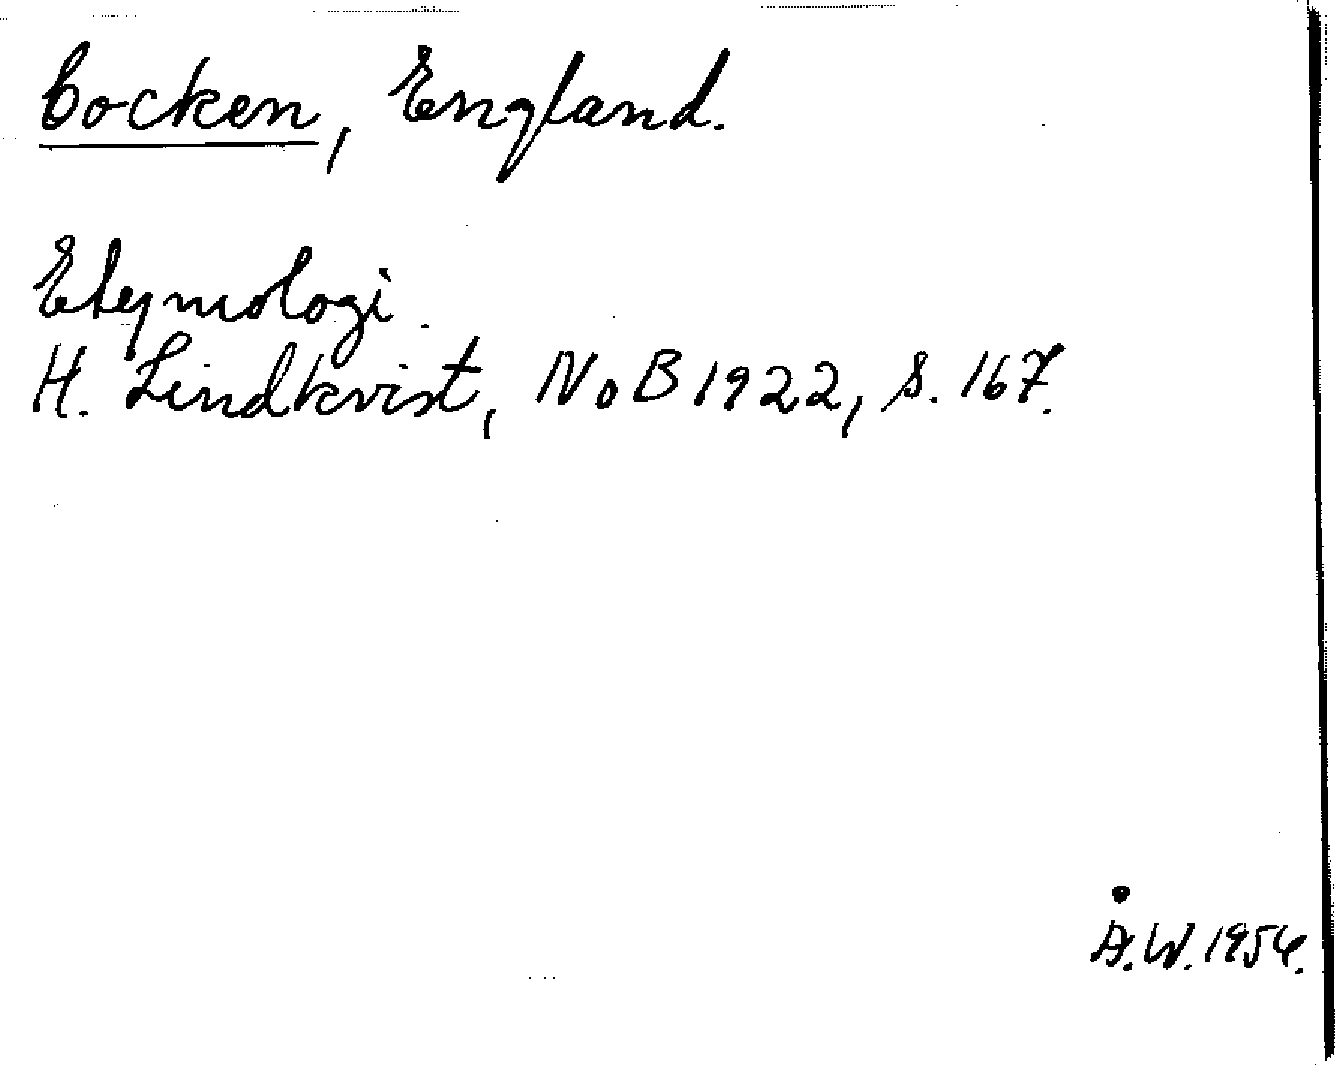 Cocken, England.
Etymologi.
H. Lindkvist, NoB 1922, s. 167.
Å.W. 1954.